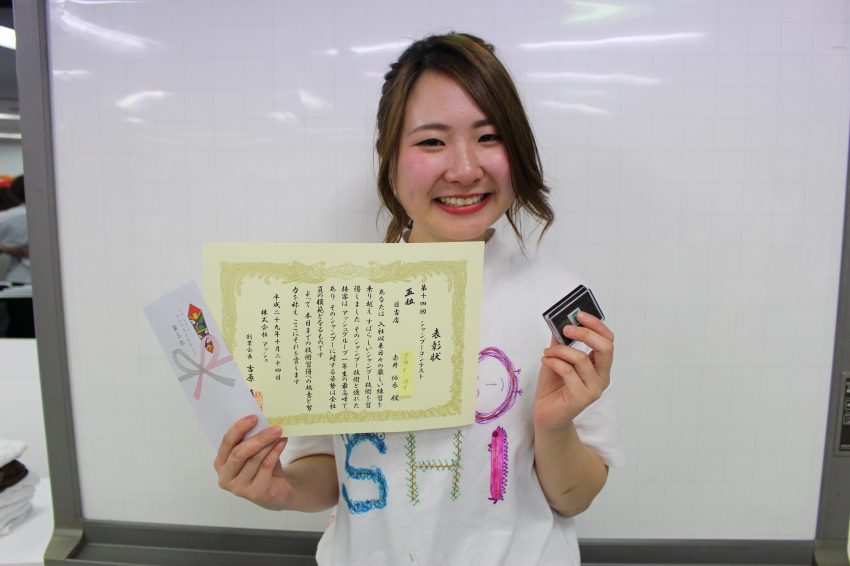 表彰状
第十四回 シャンプーコンテスト
五位
日吉店
殿
あなたは 入社以来日々の厳しい練習を
乗り越え すばらしいシャンプー技術を習
得しました そのシャンプー技術と優れた
接客は アッシュグループ一年生の最高峰で
あり そのシャンプーに対する姿勢は会社
員の模範となるものです
よって 本日までの技術習得の熱意と努
力を称え ここにそれを賞します
平成二十九年十月二十四日
株式会社 アッシュ
創業会長 吉原
第五位
SHI